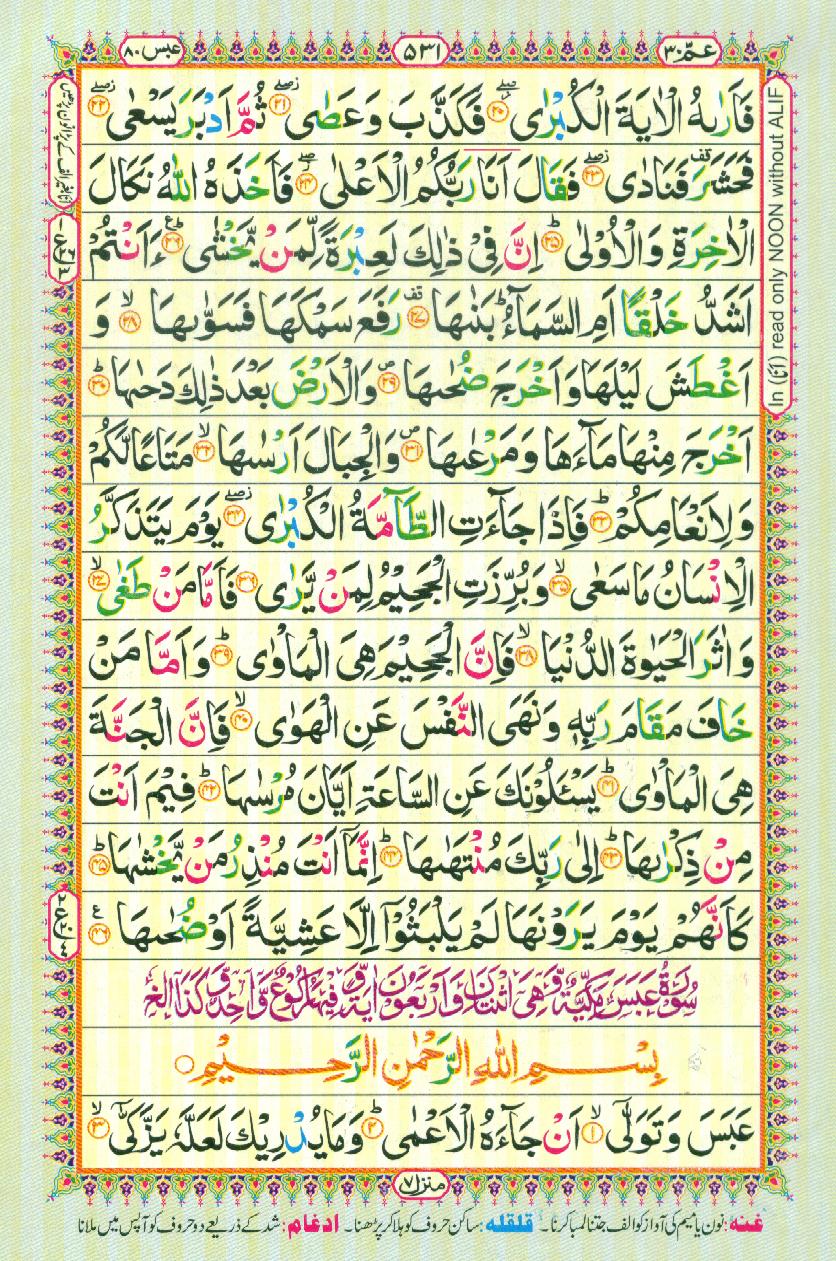 عمّ ٣٠
٥٣١
عبس ٨٠
فَاَرٰىهُ الْاٰیَةَ الْكُبْرٰی ﴿٢٠﴾ فَكَذَّبَ وَعَصٰی ﴿٢١﴾ ثُمَّ اَدْبَرَ یَسْعٰی ﴿٢٢﴾
فَحَشَرَ فَنَادٰی ﴿٢٣﴾ فَقَالَ اَنَا رَبُّكُمُ الْاَعْلٰی ﴿٢٤﴾ فَاَخَذَهُ اللّٰهُ نَكَالَ
الْاٰخِرَةِ وَالْاُوْلٰی ﴿٢٥﴾ اِنَّ فِیْ ذٰلِكَ لَعِبْرَةً لِّمَنْ یَّخْشٰی ﴿٢٦﴾ ءَاَنْتُمْ
اَشَدُّ خَلْقًا اَمِ السَّمَآءُ ؕ بَنٰىهَا ﴿٢٧﴾ رَفَعَ سَمْكَهَا فَسَوّٰىهَا ﴿٢٨﴾ وَ
اَغْطَشَ لَیْلَهَا وَاَخْرَجَ ضُحٰىهَا ﴿٢٩﴾ وَالْاَرْضَ بَعْدَ ذٰلِكَ دَحٰىهَا ﴿٣٠﴾
اَخْرَجَ مِنْهَا مَآءَهَا وَمَرْعٰىهَا ﴿٣١﴾ وَالْجِبَالَ اَرْسٰىهَا ﴿٣٢﴾ مَتَاعًا لَّكُمْ
وَلِاَنْعَامِكُمْ ﴿٣٣﴾ فَاِذَا جَآءَتِ الطَّآمَّةُ الْكُبْرٰی ﴿٣٤﴾ یَوْمَ یَتَذَكَّرُ
الْاِنْسَانُ مَا سَعٰی ﴿٣٥﴾ وَبُرِّزَتِ الْجَحِیْمُ لِمَنْ یَّرٰی ﴿٣٦﴾ فَاَمَّا مَنْ طَغٰی ﴿٣٧﴾
وَاٰثَرَ الْحَیٰوةَ الدُّنْیَا ﴿٣٨﴾ فَاِنَّ الْجَحِیْمَ هِیَ الْمَاْوٰی ﴿٣٩﴾ وَاَمَّا مَنْ
خَافَ مَقَامَ رَبِّهٖ وَنَهَی النَّفْسَ عَنِ الْهَوٰی ﴿٤٠﴾ فَاِنَّ الْجَنَّةَ
هِیَ الْمَاْوٰی ﴿٤١﴾ یَسْـَٔلُوْنَكَ عَنِ السَّاعَةِ اَیَّانَ مُرْسٰىهَا ﴿٤٢﴾ فِیْمَ اَنْتَ
مِنْ ذِكْرٰىهَا ﴿٤٣﴾ اِلٰی رَبِّكَ مُنْتَهٰىهَا ﴿٤٤﴾ اِنَّمَاۤ اَنْتَ مُنْذِرُ مَنْ یَّخْشٰىهَا ﴿٤٥﴾
كَاَنَّهُمْ یَوْمَ یَرَوْنَهَا لَمْ یَلْبَثُوْۤا اِلَّا عَشِیَّةً اَوْ ضُحٰىهَا ﴿٤٦﴾
سُوْرَةُ عَبَسَ مَكِّیَّةٌ وَّهِیَ اثْنَتَانِ وَاَرْبَعُوْنَ اٰیَةً وَّفِیْهَا رُكُوْعٌ وَّاحِدٌ
بِسْمِ اللّٰهِ الرَّحْمٰنِ الرَّحِیْمِ
عَبَسَ وَتَوَلّٰۤی ﴿١﴾ اَنْ جَآءَهُ الْاَعْمٰی ﴿٢﴾ وَمَا یُدْرِیْكَ لَعَلَّهٗ یَزَّكّٰۤی ﴿٣﴾
منزل ٧
غنه: نون یا میم کی آواز کو الف جتنا لمبا کرنا۔ قلقله: ساکن حروف کو ہلا کر پڑھنا۔ ادغام: شد کے ذریعے دو حروف کو آپس میں ملانا
In (اَنَا) read only NOON without ALIF